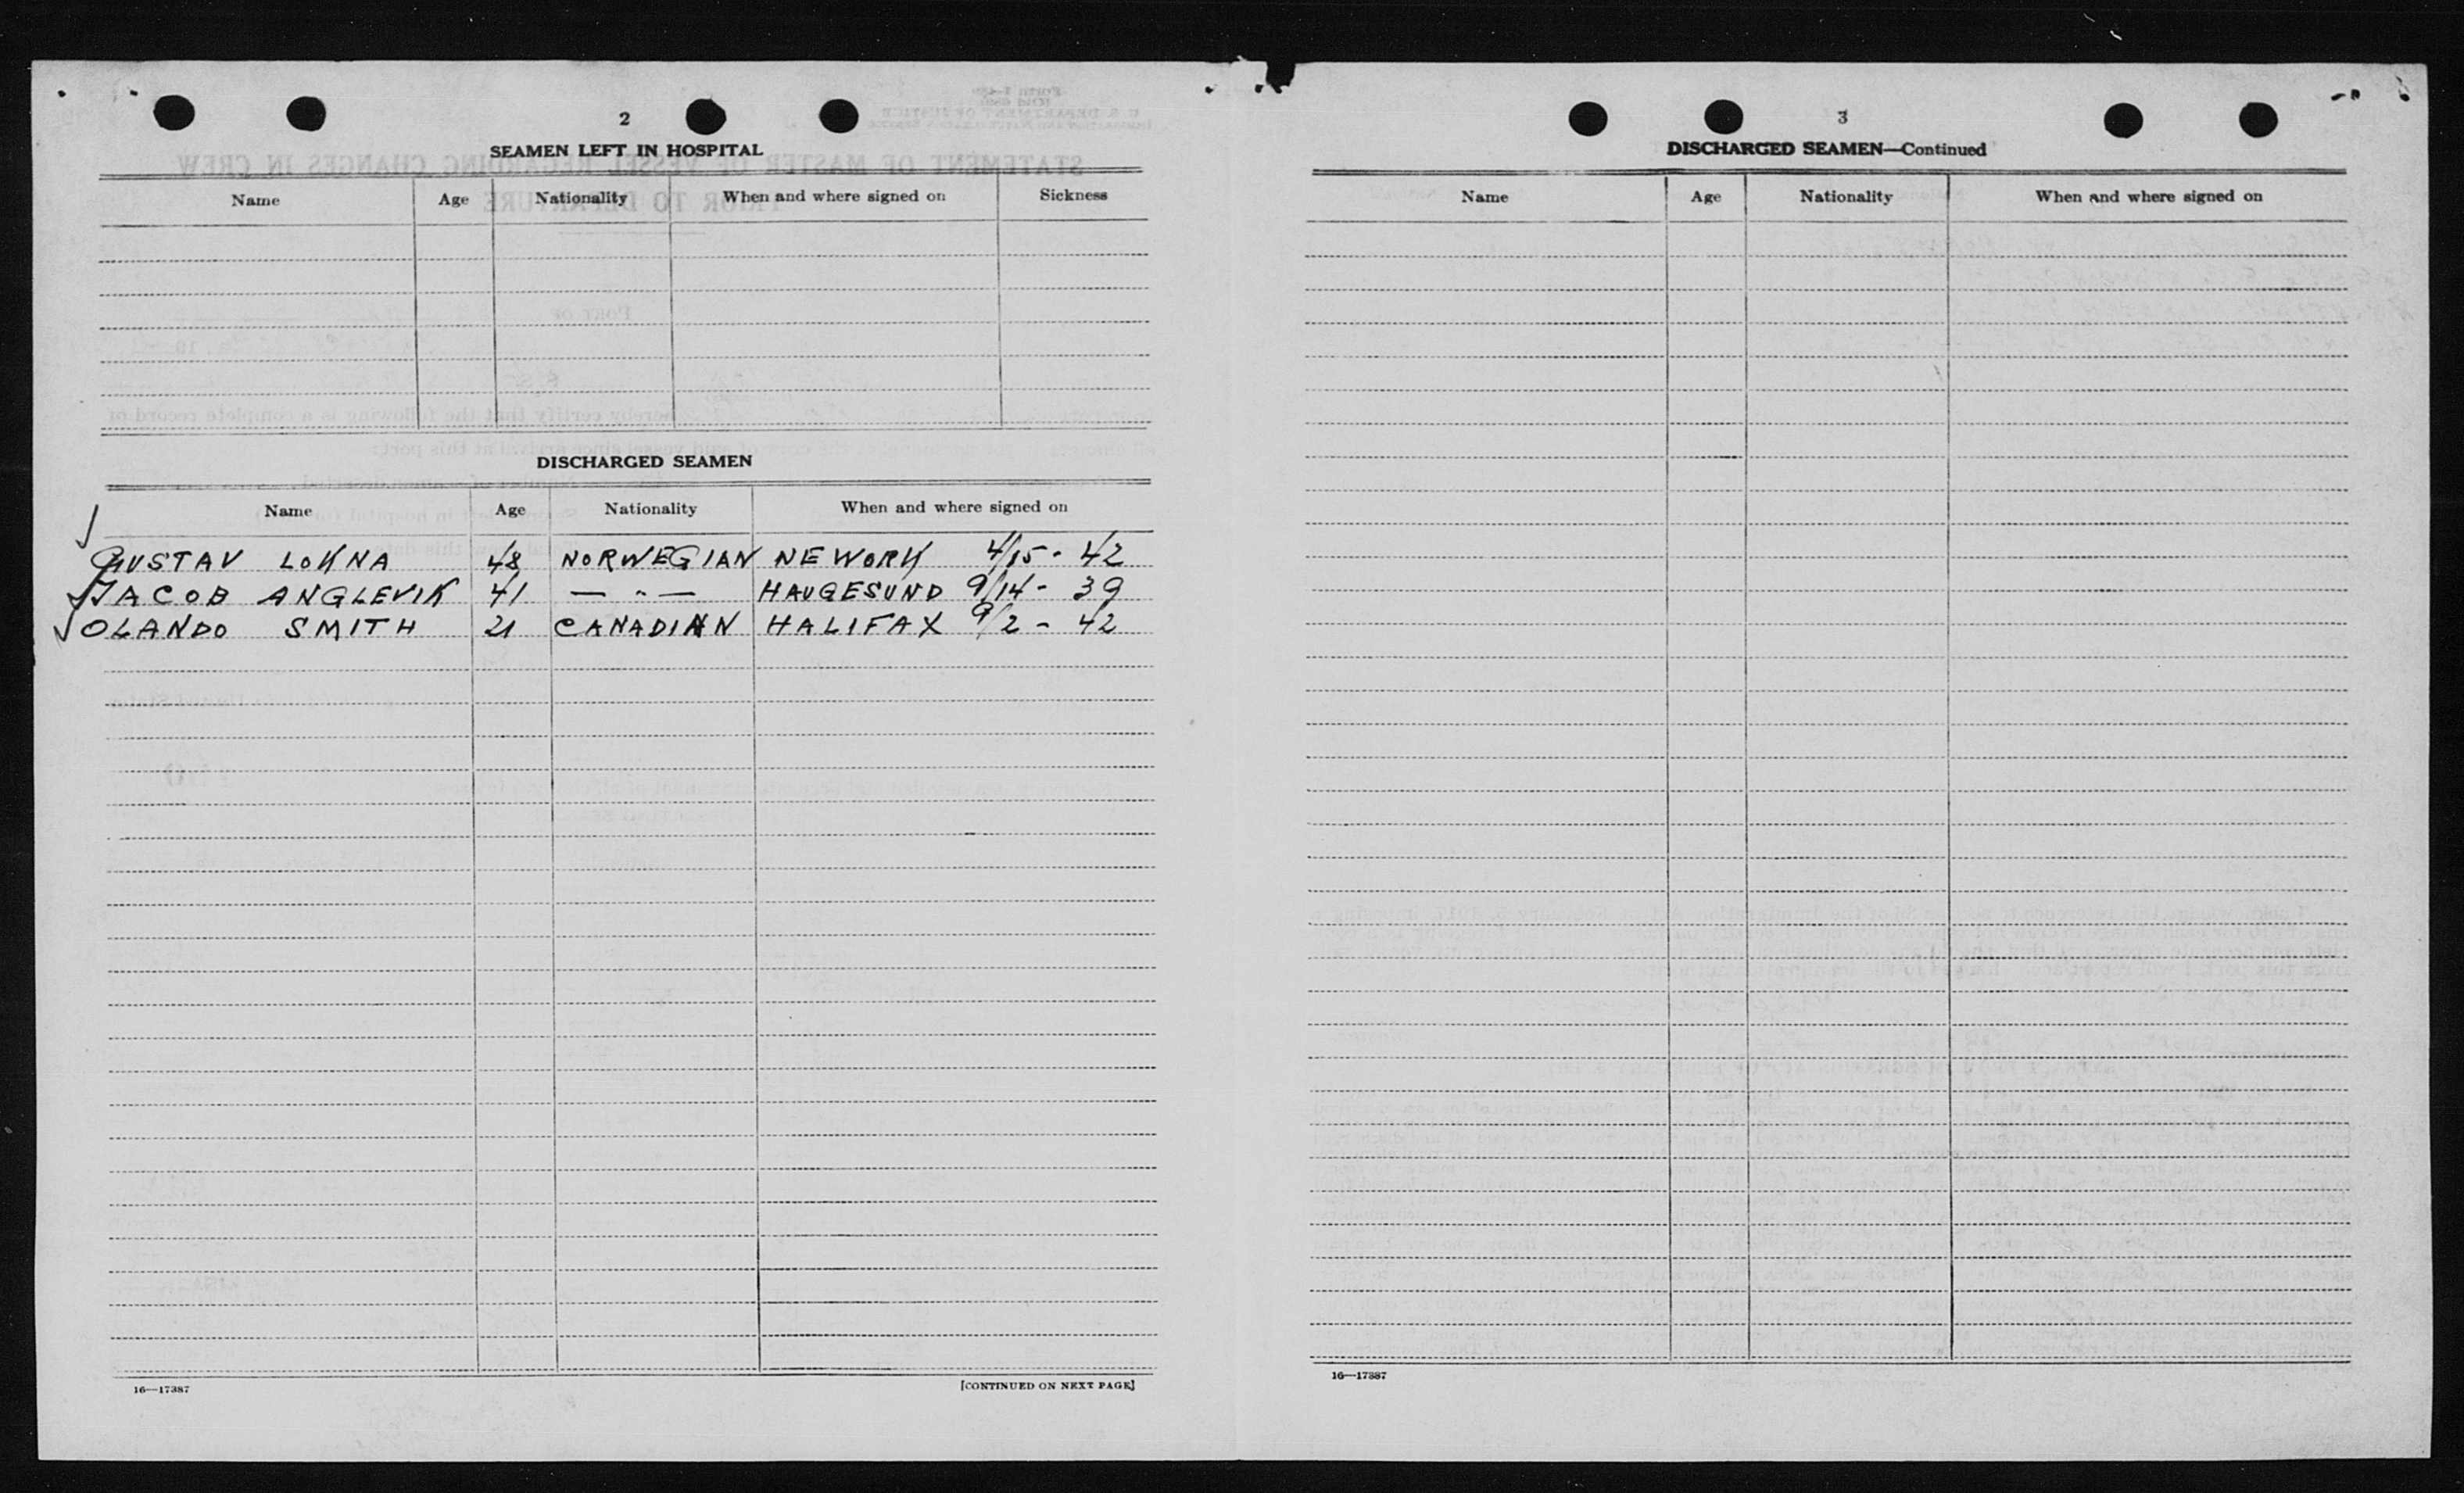 2
SEAMEN LEFT IN HOSPITAL
Name Age Nationality When and where signed on Sickness
DISCHARGED SEAMEN
Name Age Nationality When and where signed on
GUSTAV LOKNA 48 NORWEGIAN NEWORK 4/15 - 42
JACOB ANGLEVIK 41 — " — HAUGESUND 9/14 - 39
OLANDO SMITH 21 CANADIAN HALIFAX 9/2 - 42
16—17387 [CONTINUED ON NEXT PAGE]
3
DISCHARGED SEAMEN—Continued
Name Age Nationality When and where signed on
16—17387